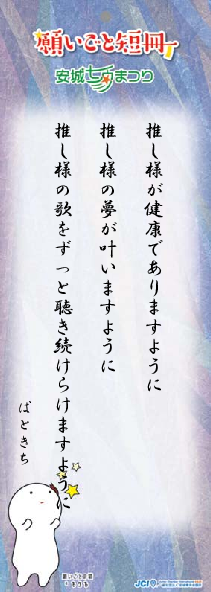 願いごと短冊
安城七夕まつり
推し様が健康でありますように
推し様の夢が叶いますように
推し様の歌をずっと聴き続けらけますように
ばときち
願いごと短冊
JCI